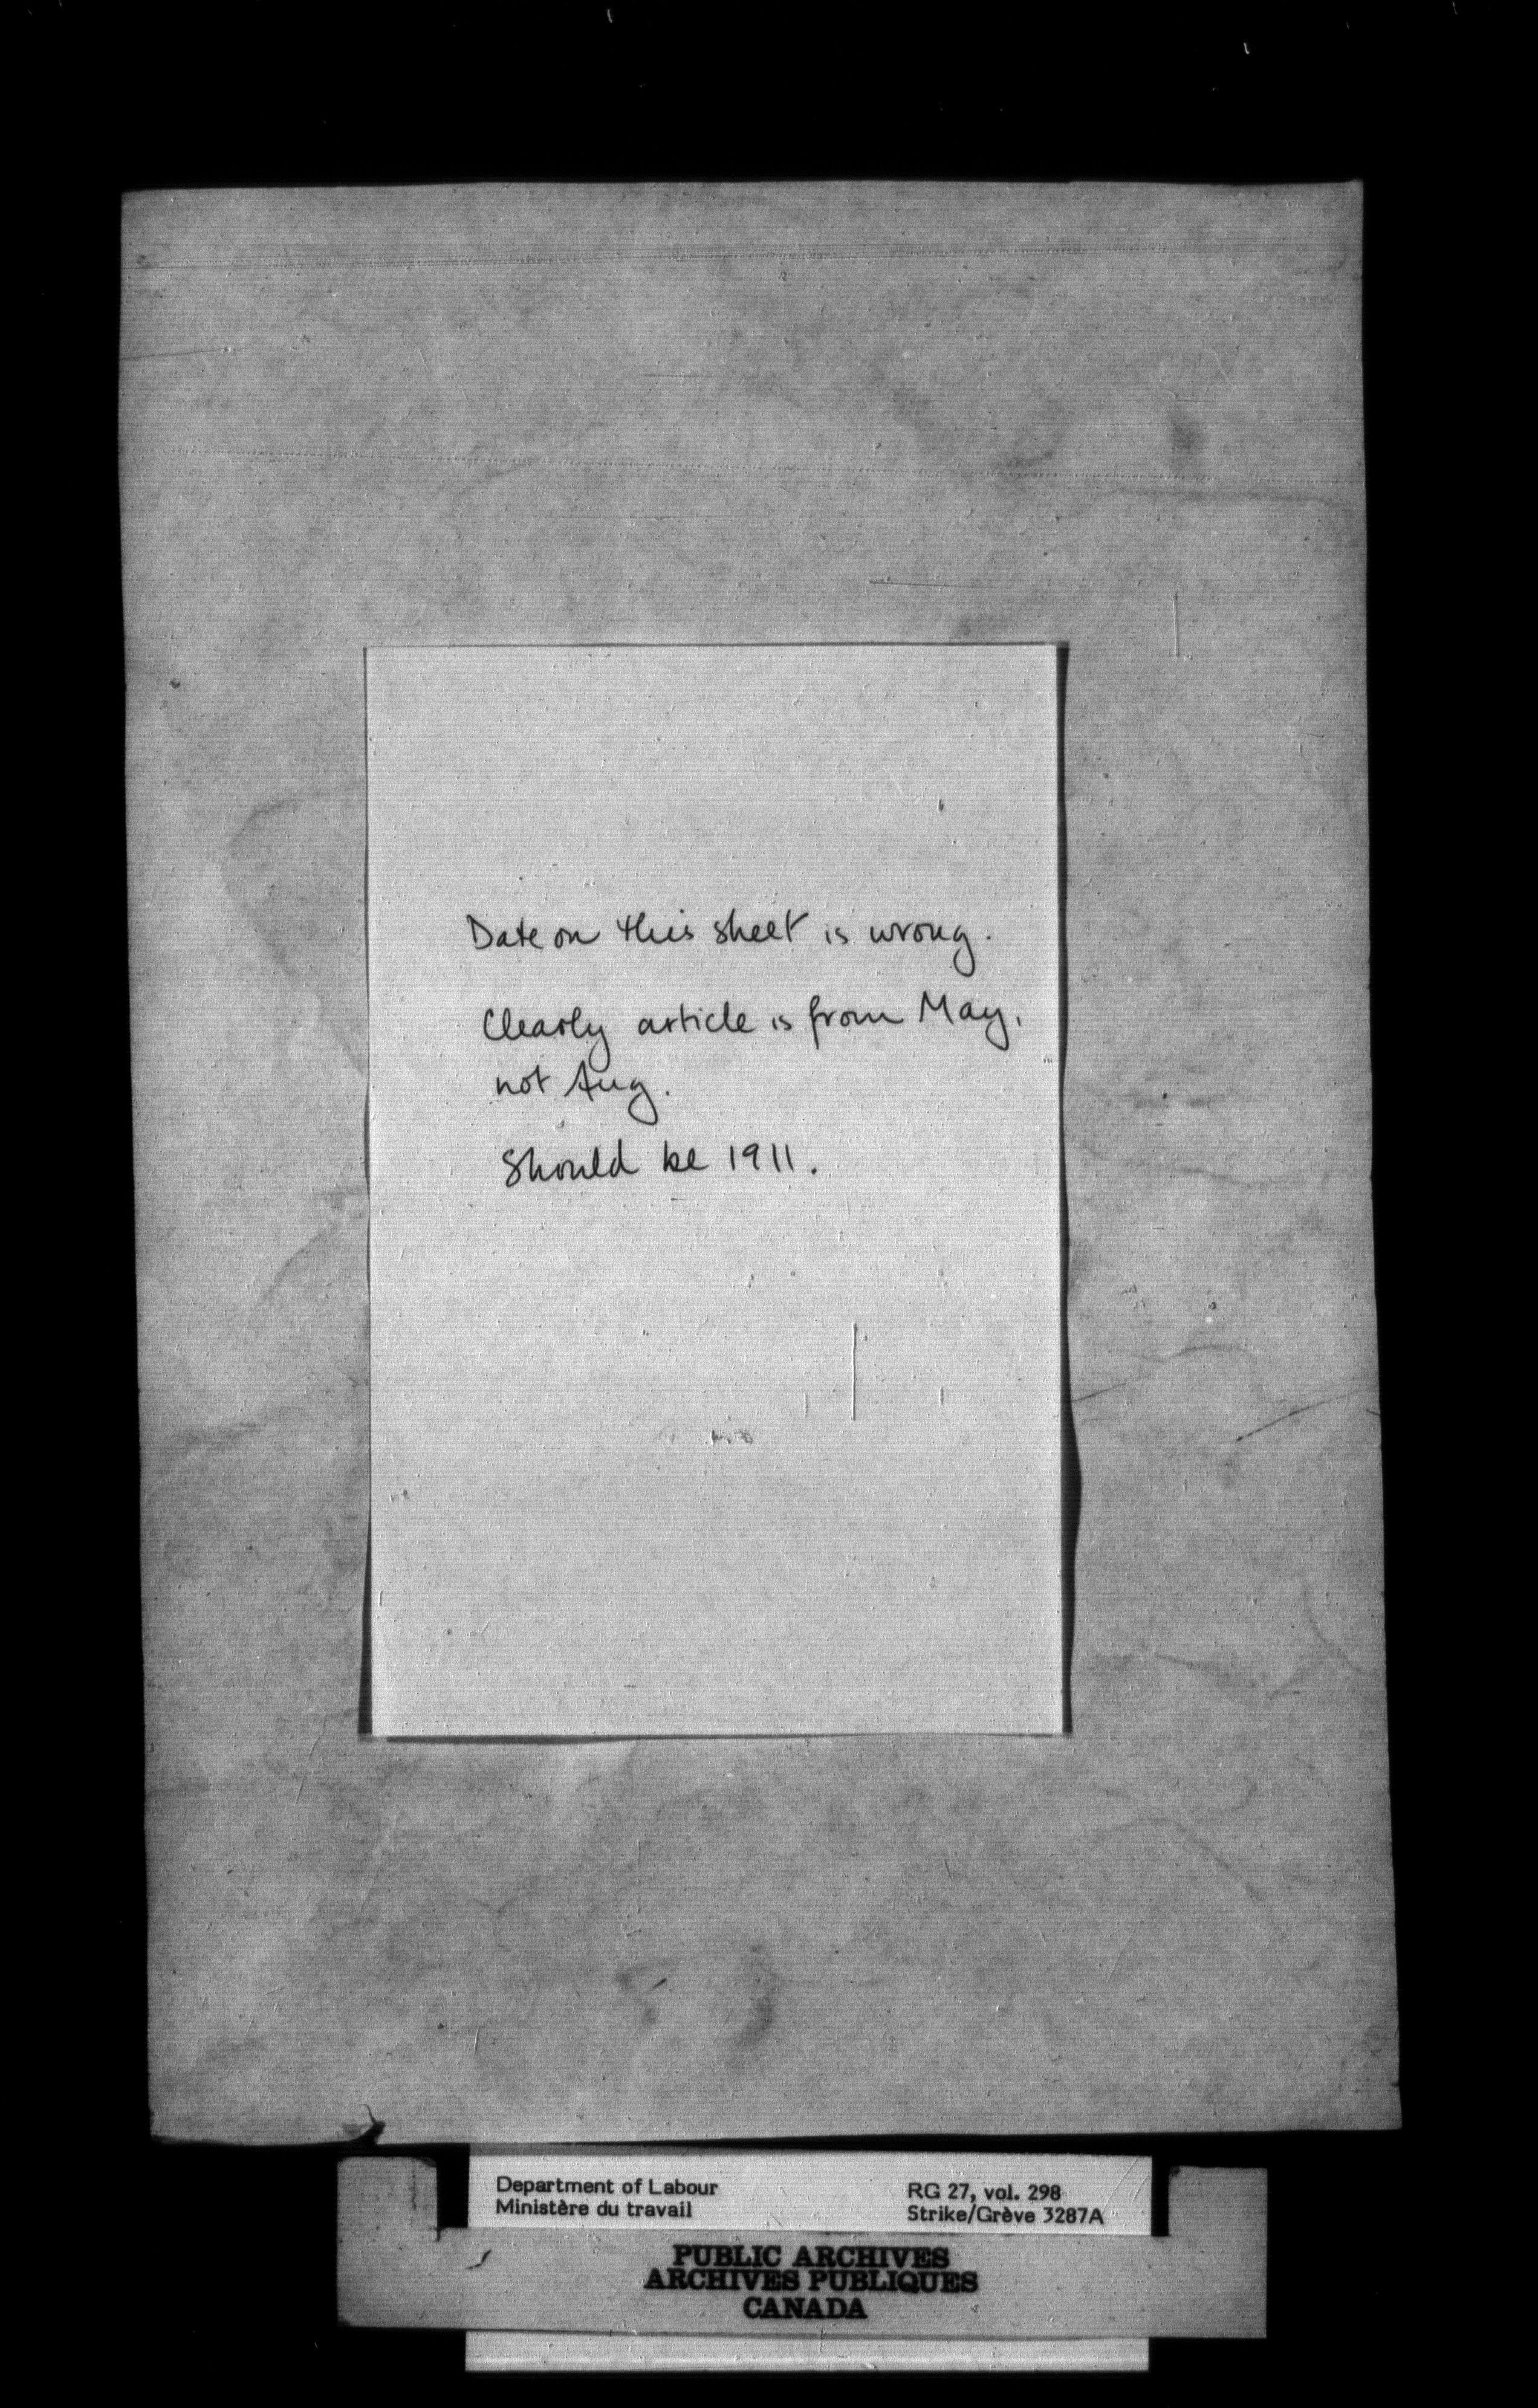 Date on this sheet is wrong.
Clearly article is from May,
not Aug.
Should be 1911.
Department of Labour
Ministère du travail
RG 27, vol. 298
Strike/Grève 3287A
PUBLIC ARCHIVES
ARCHIVES PUBLIQUES
CANADA